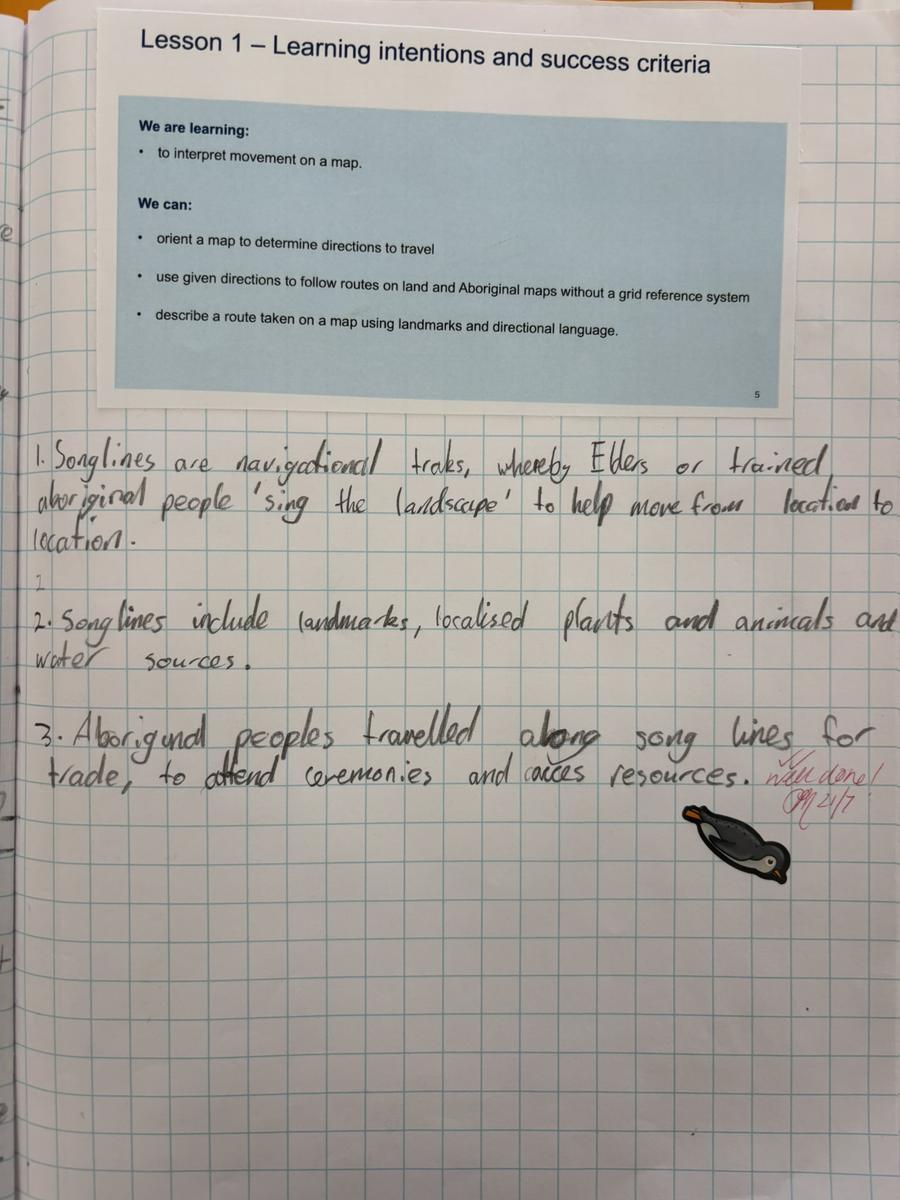 Lesson 1 – Learning intentions and success criteria
We are learning:
• to interpret movement on a map.
We can:
• orient a map to determine directions to travel
• use given directions to follow routes on land and Aboriginal maps without a grid reference system
• describe a route taken on a map using landmarks and directional language.
5
1. Songlines are navigational traks, whereby Elders or trained
aboriginal people 'sing the landscape' to help move from location to
location.
1
2. Songlines include landmarks, localised plants and animals and
water sources.
3. Aboriginal peoples travelled along song lines for
trade, to attend ceremonies and acces resources. Well done!
21/7